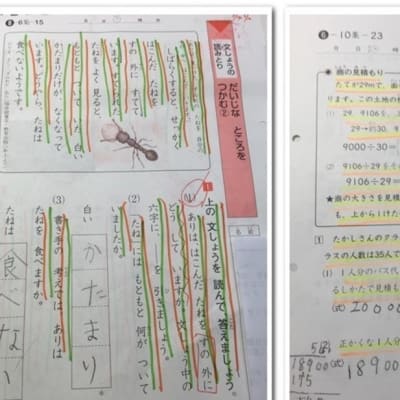 6集-15
文しょうの
読みとり
だいじな ところを
つかむ②
しばらくすると、せっかく
はこんだ たねを
すの 外に すてて
います。すてられた
たねを よく 見ると、
もともと ついて いた 白い
かたまりだけが、なくなって
います。どうやら、たねは
食べないようです。
1 上の 文しょうを 読んで、答えましょう。
(1) ありは、はこんだ たねを すの 外に
どう して いますか。文しょう中の
六字に、 を 引きましょう。
(2) たねには もともと 何が ついて
いましたか。
白い かたまり
(3) 書き手の 考えでは、ありは
たねを 食べますか。
たねは 食べない
6-10集-23
商の見積もり
たてが29mで、面
ります。この土地の横
(1) 29, 9106を、
29→約30, 9
9000÷30=
(2) 9106÷29を
9106÷29=
★商の大きさを見積
も、上から1けた
1 たかしさんのクラ
ラスの人数は35人で
(1) 1人分のバス代
るしかたで見積も
(式) 20000
正かくな1人分
18900
18900
175